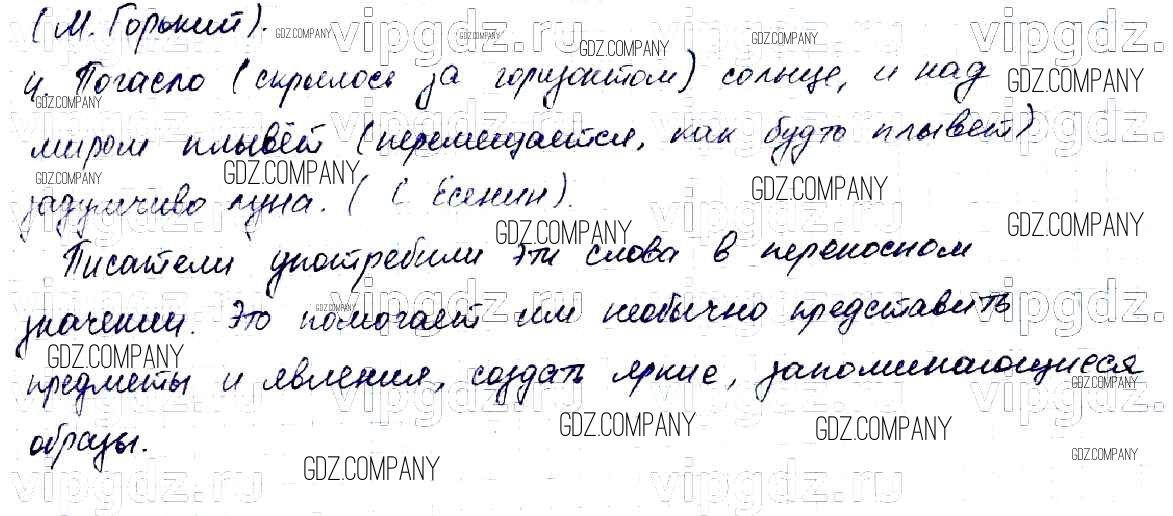 (М. Горький).
4. Погасло (скрылось за горизонтом) солнце, и над
миром плывёт (перемещается, как будто плывёт)
задумчиво луна. ( С Есенин).
Писатели употребили эти слова в переносном
значении. Это помогает им необычно представить
предметы и явления, создать яркие, запоминающиеся
образы.